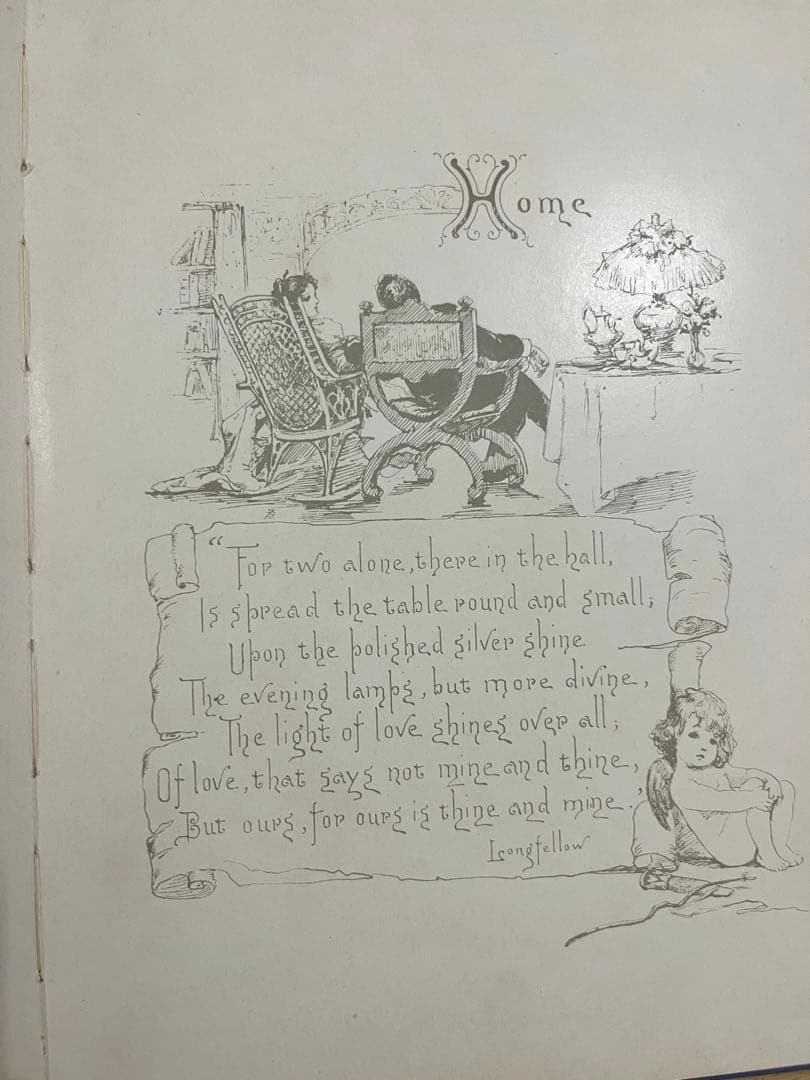 Home
"For two alone, there in the hall,
Is spread the table round and small;
Upon the polished silver shine
The evening lamps, but more divine,
The light of love shines over all;
Of love, that says not mine and thine,
But ours, for ours is thine and mine."
Longfellow